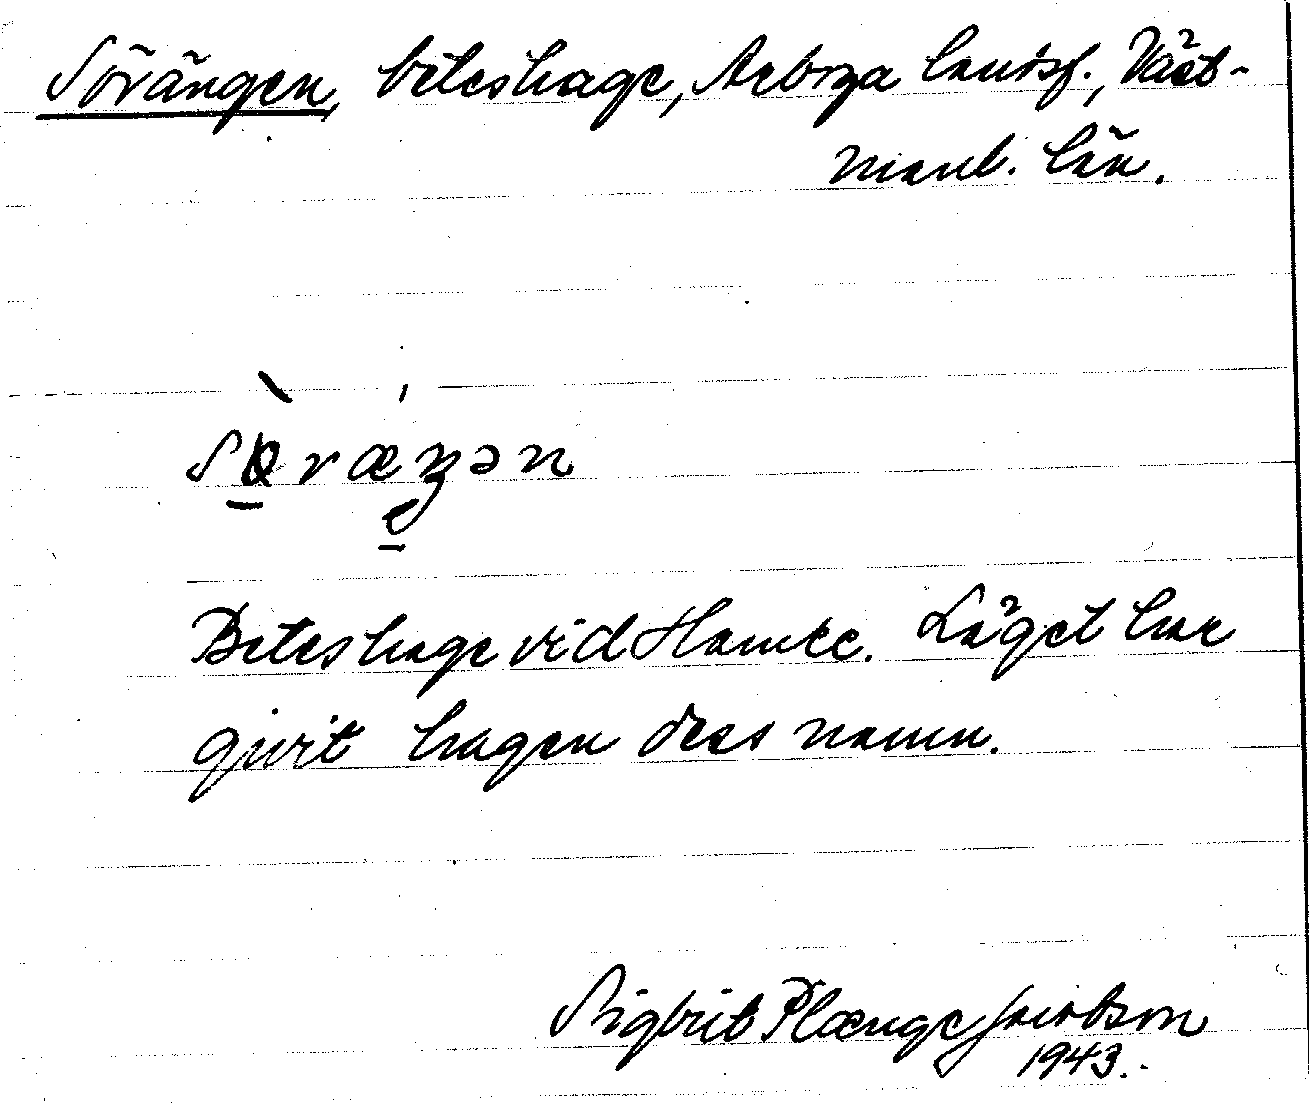 Sörängen, beteshage, Arboga landsf., Väst-
manl. län.
Beteshage vid Hamre. Läget har
givit hagen dess namn.
Sigbrit Plænge Jacobson
1943.